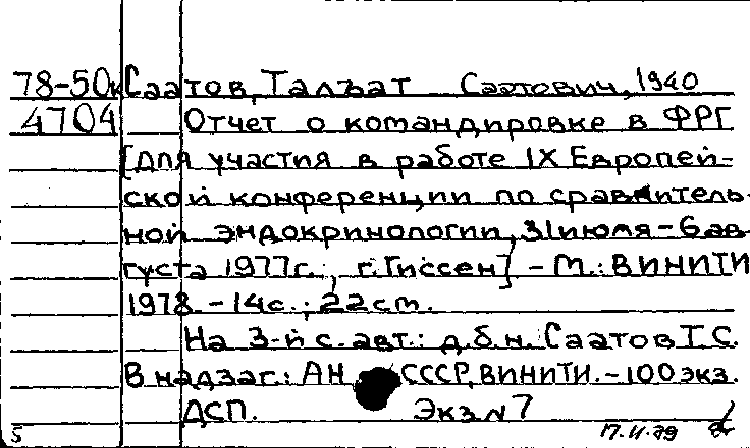 78-50к Саатов, Талъат Саатович, 1940
4704 Отчет о командировке в ФРГ
[для участия в работе IX Европей-
ской конференции по сравнитель-
ной эндокринологии, 31 июля - 6 ав-
густа 1977г., г. Гиссен] - М.: ВИНИТИ
1978. - 14с.; 22см.
На 3-й с. авт.: д.б.н. Саатов Т.С.
В надзаг.: АН СССР, ВИНИТИ. - 100 экз.
ДСП. Экз N 7
5 17.11.79